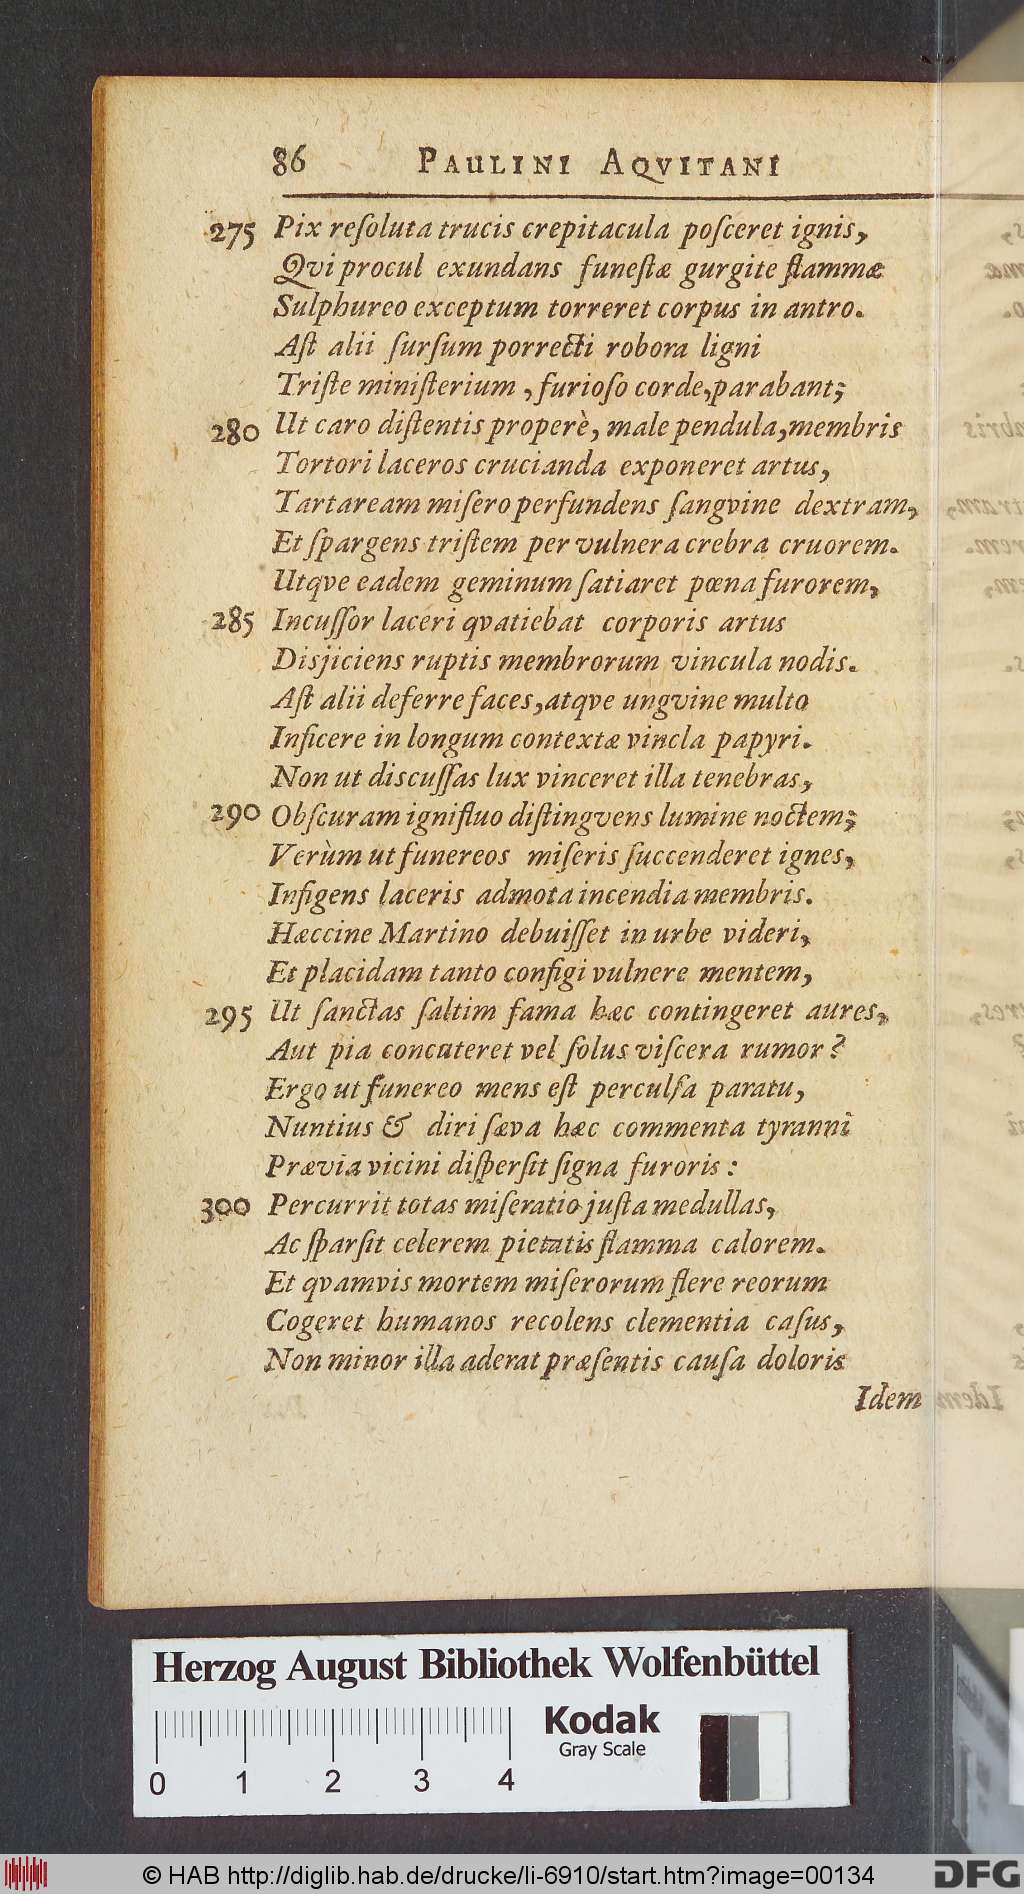 86 PAULINI AQVITANI
275 Pix reſoluta trucis crepitacula poſceret ignis,
Qvi procul exundans funeſtæ gurgite flammæ
Sulphureo exceptum torreret corpus in antro.
Aſt alii ſurſum porrecti robora ligni
Triſte miniſterium, furioſo corde, parabant;
280 Ut caro diſtentis properè, male pendula, membris
Tortori laceros crucianda exponeret artus,
Tartaream miſero perfundens ſangvine dextram,
Et ſpargens triſtem per vulnera crebra cruorem.
Utqve eadem geminum ſatiaret pœna furorem,
285 Incuſſor laceri qvatiebat corporis artus
Disjiciens ruptis membrorum vincula nodis.
Aſt alii deferre faces, atqve ungvine multo
Inficere in longum contextæ vincla papyri.
Non ut discuſſas lux vinceret illa tenebras,
290 Obſcuram ignifluo diſtingvens lumine noctem;
Verùm ut funereos miſeris ſuccenderet ignes,
Infigens laceris admota incendia membris.
Hæccine Martino debuiſſet in urbe videri,
Et placidam tanto configi vulnere mentem,
295 Ut ſanctas ſaltim fama hæc contingeret aures,
Aut pia concuteret vel ſolus viſcera rumor?
Ergo ut funereo mens eſt perculſa paratu,
Nuntius & diri ſæva hæc commenta tyranni
Prævia vicini diſperſit ſigna furoris:
300 Percurrit totas miſeratio juſta medullas,
Ac ſparſit celerem pietatis flamma calorem.
Et qvamvis mortem miſerorum flere reorum
Cogeret humanos recolens clementia caſus,
Non minor illa aderat præſentis cauſa doloris
Idem
Herzog August Bibliothek Wolfenbüttel
Kodak
Gray Scale
0 1 2 3 4
© HAB http://diglib.hab.de/drucke/li-6910/start.htm?image=00134
DFG